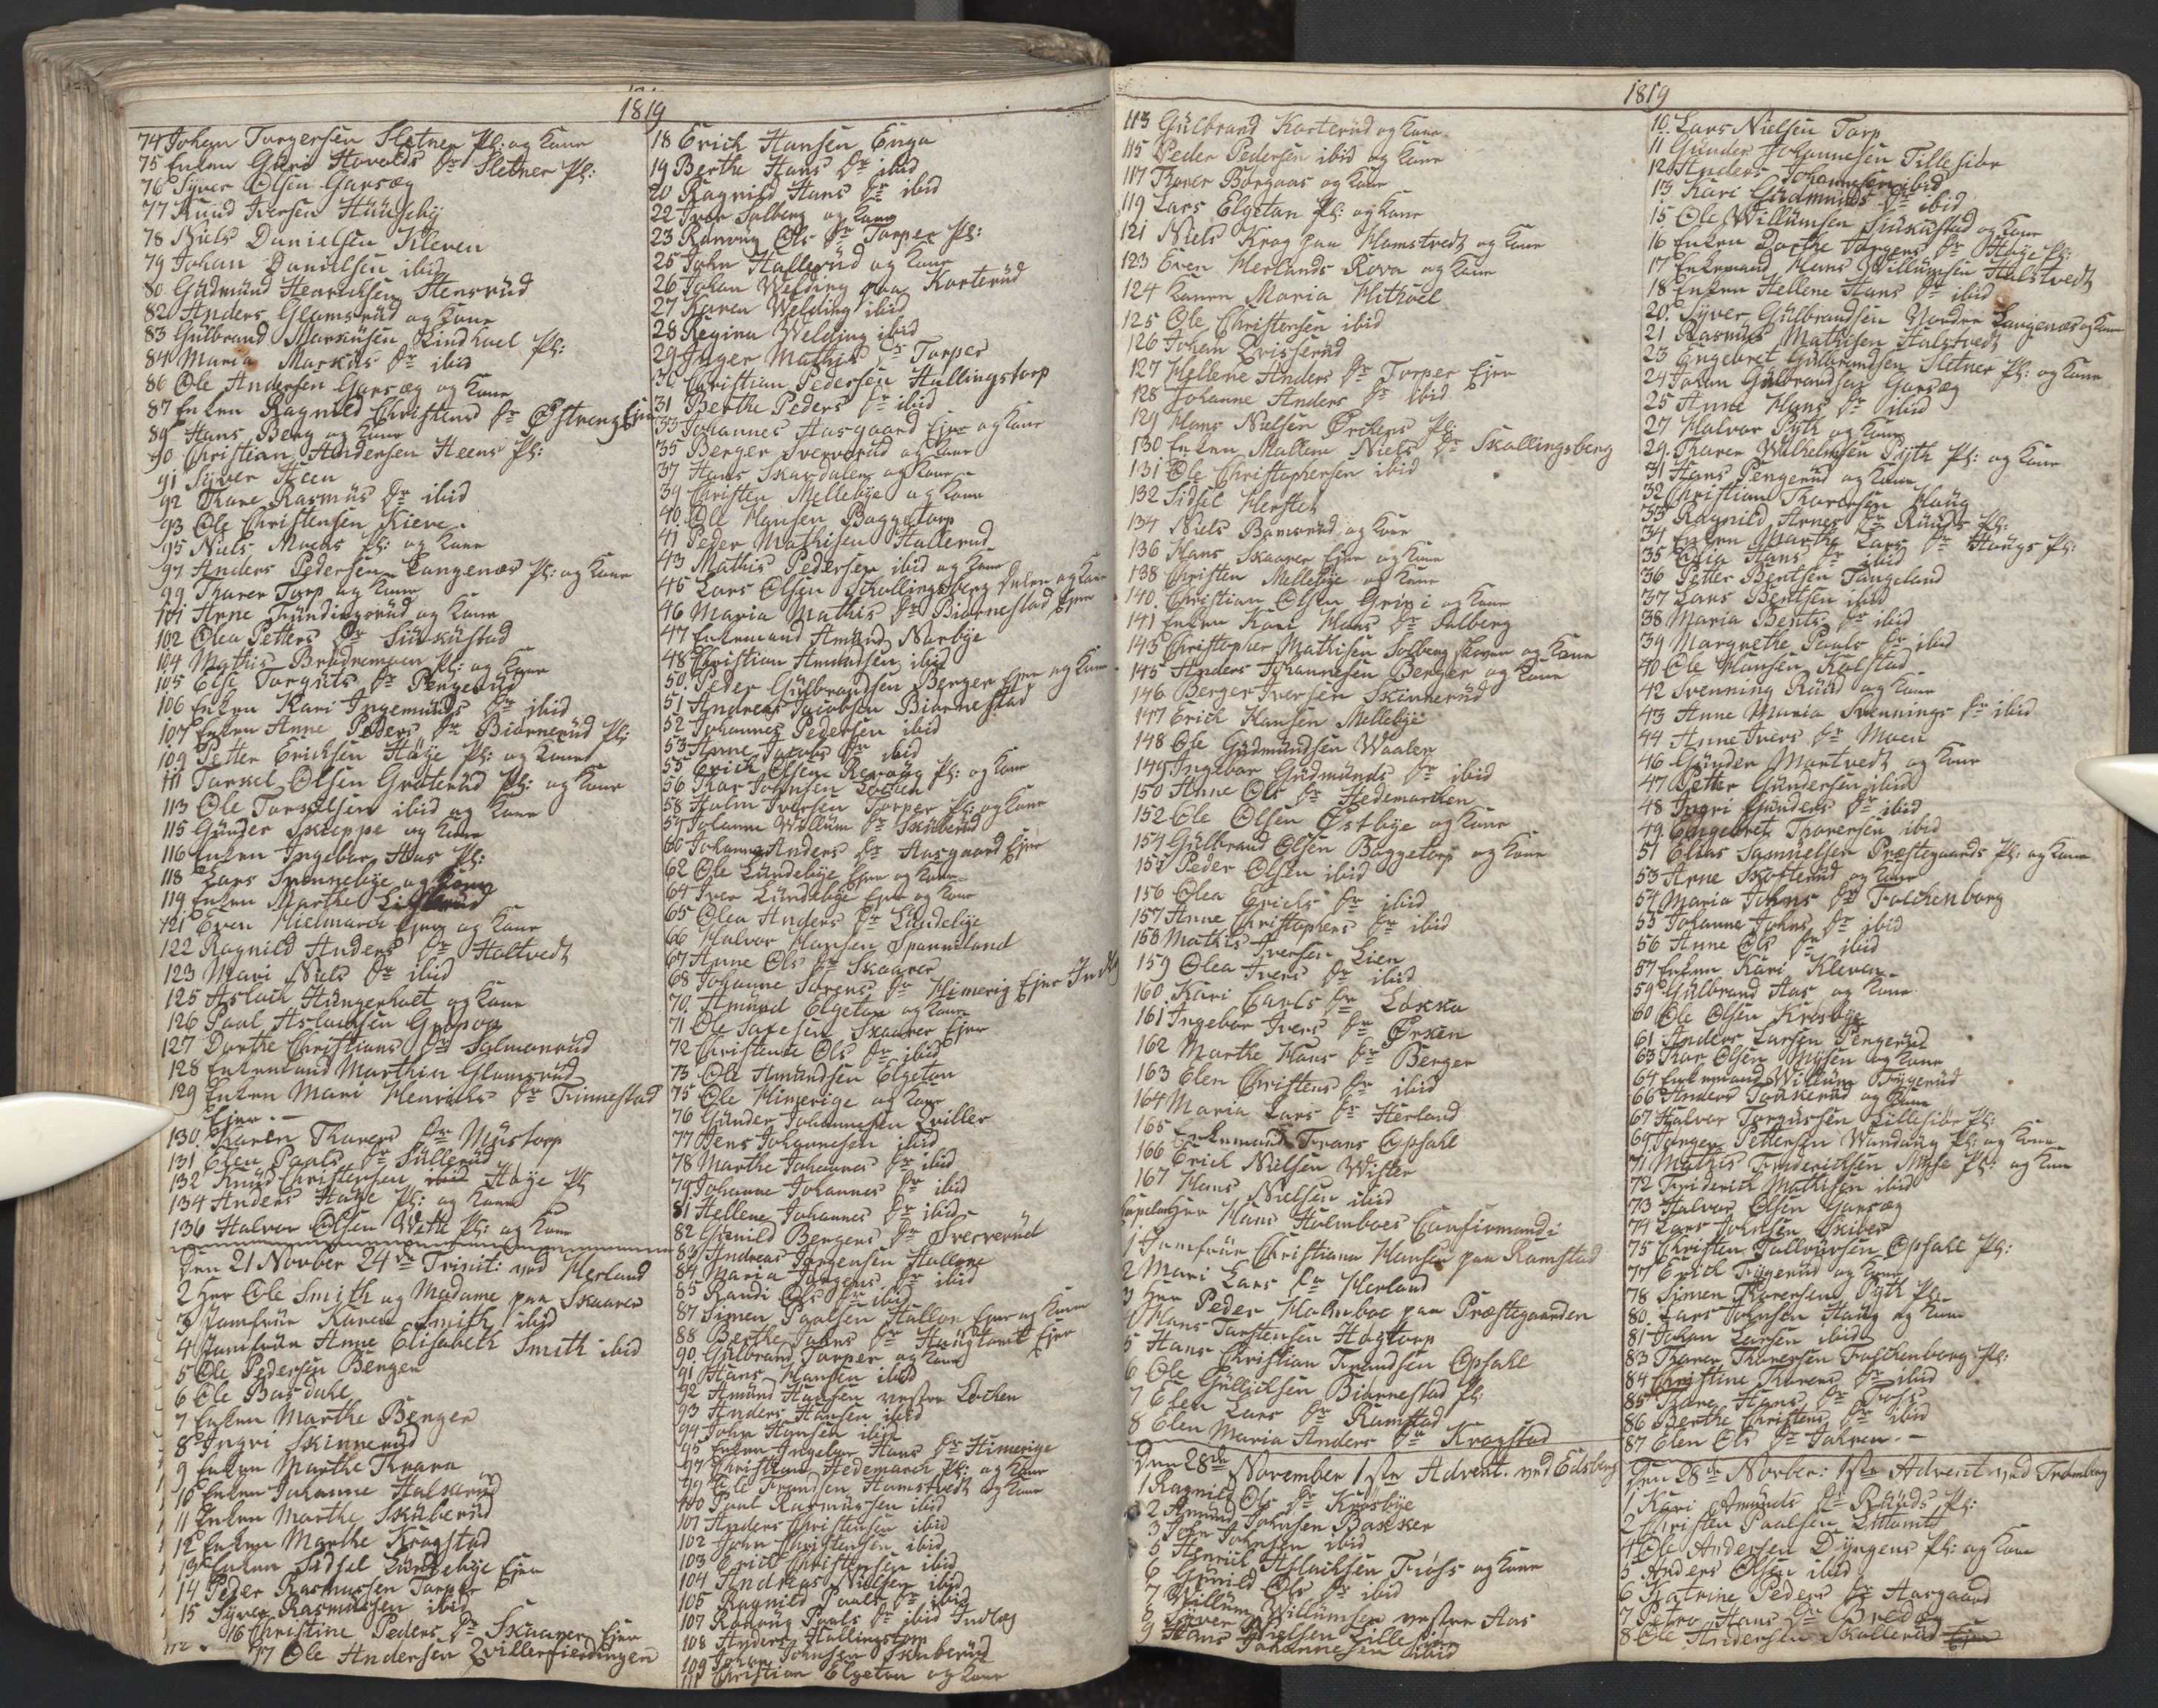 1819
74 Johan Torgersen Sletner Pl: og Kone
75 Enken Guri Havolds Dr Sletner Pl:
76 Syver Olsen Garsæg
77 Knud Iversen Huuseby
78 Niels Danielsen Kleven
79 Johan Danielsen ibid
80 Gudmund Henrichsen Stensrüd
82 Anders Glamsrüd og Kone
83 Gulbrand Markusen Lindhoel Pl:
84 Maria Markus Dr ibid
86 Ole Andersen Garsæg og Kone
87 Enken Ragnild Christens Dr Østreng Ejer
89 Hans Berg og Kone
90 Christian Andersen Heens Pl:
91 Syver Heen
92 Thore Rasmus Dr ibid
93 Ole Christensen Kiere
95 Niels Moens Pl: og Kone
97 Anders Pedersen Langenæs Pl: og Kone
99 Thorer Torp og Kone
101 Arne Trundingsrüd og Kone
102 Olea Petters Dr Suukustad
104 Mathis Brüdremoen Pl: og Kone
105 Else Torguts Dr Pengerüd
106 Enken Kari Ingemunds Dr ibid
107 Enken Anne Peders Dr Biørnerüd Pl:
109 Petter Erichsen Høye Pl: og Kone
111 Torkel Olsen Groterüd Pl: og Kone
113 Ole Torkelsen ibid og Kone
115 Gunder Skieppe og Kone
116 Enken Ingebor Aas Pl:
118 Lars Svennebye og Kone
119 Enken Marthe
121 Even Hielmark Ejer og Kone
122 Ragnild Anders Dr Holtvedt
123 Mari Niels Dr ibid
125 Aslach Hungerholt og Kone
126 Paul Aslachsen Grepop
127 Dorthe Christians Dr Salmonrüd
128 Enkemand Marthin Glamsrüd
129 Enken Mari Henrichs Dr Finnestad
Ejer.
130 Karen Thorers Dr Nuustorp
131 Elen Pouls Dr Süllerüd
132 Knud Christensen Høye Pl
134 Anders Høye Pl: og Kone
136 Halvor Olsen Weth Pl: og Kone
Den 21 Novber 24de Trinit: ved Herland
2 Herr Ole Smith og Madame paa Skaarer
3 Jomfrue Karen Smith ibid
4 Jomfrue Anne Elisabeth Smith ibid
5 Ole Pedersen Berger
6 Ole Basdahl
7 Enken Marthe Berger
8 Ingri Skinnerüd
9 Enken Marthe Kraen
10 Enken Johanne Halserüd
11 Enken Marthe Skuberüd
12 Enken Marthe Krogstad
13 Enken Sidsel Lundebye Ejer
14 Peder Rasmussen Torper
15 Syver Rasmussen ibid
16 Christine Peders Dr Skaarer Ejer
17 Ole Andersen Qvillerfierdingen
18 Erich Hansen Enga
19 Berthe Hans Dr ibid
20 Ragnild Hans Dr ibid
22 Iver Solberg og Kone
23 Ranvug Ols Dr Torper Pl:
25 John Hallerüd og Kone
26 Johan Welding paa Korterüd
27 Karen Welding ibid
28 Regina Welding ibid
29 Inger Mathis Dr Torper
30 Christian Pedersen Hallingstorp
31 Berthe Peders Dr ibid
33 Johannes Aasgaard Ejer og Kone
35 Berger Sververüd og Kone
37 Hans Skaardalen og Kone
39 Christen Mellebye og Kone
40 Ole Hansen Boggetorp
41 Peder Mathisen Hallerud
43 Mathis Pedersen ibid og Kone
45 Lars Olsen Skallingsberg Inlem og Kone
46 Maria Mathis Dr Biørnestad Ejer
47 Enkemand Amund Narbye
48 Christian Amundsen ibid
50 Peder Gulbrandsen Berger Ejer og Kone
51 Andreas Jacobsen Biørnestad
52 Johannes Pedersen ibid
53 Anne Jacobs Dr ibid
55 Erich Olsen Revoug Pl: og Kone
56 Thor Johnsen Løchen
58 Holm Iversen Torper Pl: og Kone
59 Johanne Willum Dr Skuberud
60 Johanne Anders Dr Aasgaard Ejer
62 Ole Lundebye Ejer og Kone
64 Iver Lundebye Ejer og Kone
65 Olea Anders Dr Lundebye
66 Halvor Hansen Spanneland
67 Anne Ols Dr Skaarer
68 Johanne Sørens Dr Himerig Ejer
70 Amund Elgeton og Kone
71 Ole Saxesen Skaarer Ejer
72 Christense Ols Dr ibid
73 Ole Amundsen Elgeton
75 Ole Himerige og Kone
76 Gunder Johannesen Qviller
77 Jens Johannesen ibid
78 Marthe Johannes Dr ibid
79 Johanne Johannes Dr ibid
81 Hellene Johannes Dr ibid
82 Gunild Bergers Dr Sververud
83 Andreas Jørgensen Hallone
84 Maria Jørgens Dr ibid
85 Randi Ols Dr ibid
87 Simen Poulsen Hallon Ejer og Kone
88 Berthe Johns Dr Haugtomt Ejer
90 Gulbrand Torper og Kone
91 Hans Hansen ibid
92 Amund Hansen vestre Løchen
93 Anders Hansen ibid
94 John Hansen ibid
95 Enken Ingebor Hans Dr Himerige
97 Christian Hedemarch Pl: og Kone
99 Ole Frandsen Homstvedt og Kone
100 Poul Rasmussen ibid
101 Anders Christensen ibid
102 John Christensen ibid
103 Erich Christensen ibid
104 Andreas Nielsen ibid
105 Ragnild Pouls Dr ibid
107 Ranoug Pouls Dr ibid Indlæg
108 Anders Hallingstorp
109 Johan Johnsen Skuberüd
111 Christian Elgeton og Kone
1819
113 Gulbrand Korterüd og Kone
115 Peder Pedersen ibid og Kone
117 Thorer Borgaas og Kone
119 Lars Elgeton Pl: og Kone
121 Niels Krog paa Homstvedt og Kone
123 Even Herlands Rova og Kone
124 Konen Maria Mithvel
125 Ole Christensen ibid
126 Johan Qvisserud
127 Hellene Anders Dr Torper Ejer
128 Johanne Anders Dr ibid
129 Hans Nielsen Ørchens Pl:
130 Enken Mallene Niels Dr Skallingsberg
131 Ole Christophersen ibid
132 Sidsel Herstet
134 Niels Bamerud og Kone
136 Hans Skaarer Ejer og Kone
138 Christen Mellebye og Kone
140 Christian Olsen Gripi og Kone
141 Enken Kari Hans Dr Solberg
143 Christopher Mathisen Solberg Skoven og Kone
145 Anders Johannesen Berger og Kone
146 Berger Iversen Skinnerüd
147 Erich Hansen Mellebye
148 Ole Gudmundsen Waaler
149 Ingebor Gudmunds Dr ibid
150 Anne Ols Dr Hedemarchen
152 Ole Olsen Østbye og Kone
154 Gulbrand Olsen Boggetorp og Kone
155 Peder Olsen ibid
156 Olea Erichs Dr ibid
157 Anne Christophers Dr ibid
158 Mathis Iversen Lien
159 Olea Ivers Dr ibid
160 Kari Carls Dr Løkka
161 Ingebor Ivers Dr Ørken
162 Marthe Hans Dr Berger
163 Elen Christens Dr ibid
164 Maria Lars Dr Herland
165 Enkemand Frans Opsahl
166 Erich Nielsen Wister
167 Hans Nielsen ibid
Capelan Herr Hans Holmboes Confirmandi
1 Jomfrue Christiana Hansen paa Ramstad
2 Mari Lars Dr Herland
3 Herr Peder Holmboe paa Præstegaarden
4 Hans Torstensen Hagtorp
5 Hans Christian Frandsen Opsahl
6 Ole Gullichsen Biørnestad Pl:
7 Elen Lars Dr Ramstad
8 Elen Maria Anders Dr Krogstad
Den 28de November 1ste Advent. ved Eidsberg
1 Ragnild Ols Dr Krosbye
2 Amund Johnsen Bakker
3 John Johnsen ibid
5 Henrich Aslachsen Fross og Kone
6 Gunild Ols Dr ibid
7 Willum Willumsen vestre Aas
8 Syver Nielsen Lillesiør
9 Hans Johannesen ibid
10. Lars Nielsen Torp
11 Gunder Johannesen Tillesiør
12 Anders Johannesen ibid
13 Kari Gudmunds Dr ibid
15 Ole Willumsen Suukustad og Kone
16 Enken Dorthe Torgers Dr Høye Pl:
17 Enkemand Hans Willumsen Holstvedt
18 Enken Hellene Hans Dr ibid
20. Syver Gulbrandsen Nordre Langenæs og Kone
21 Rasmus Mathisen Holstvedt
23 Engebret Gulbrandsen Sletner Pl: og Kone
24 Johan Gulbrandsen Garsæg
25 Anne Hans Dr ibid
27 Halvor Pyth og Kone
29. Thorer Wilhelmsen Pyth Pl: og Kone
31 Hans Pengerud og Kone
32 Christian Thoresen Haug
33 Ragnild Arnes Dr Ruuds Pl:
34 Enken Marthe Lars Dr Haugs Pl:
35 Olia Hans Dr ibid
36 Petter Bentsen Tangeland
37 Lars Bentsen ibid
38 Maria Bents Dr ibid
39 Margrethe Pouls Dr ibid
40 Ole Hansen Kolstad
42 Svenning Ruud og Kone
43 Anne Maria Svennings Dr ibid
44 Anne Ivers Dr Moen
46 Gunder Mortvedt og Kone
47 Petter Gundersen ibid
48 Ingri Gunders Dr ibid
49 Engebret Thoresen ibid
51 Elias Samuelsen Præstegaards Pl: og Kone
53 Arne Skofterud og Kone
54 Maria Johns Dr Falchenborg
55 Johanne Johns Dr ibid
56 Anne Ols Dr ibid
57 Enken Kari Kleven
59 Gulbrand Aas og Kone
60 Ole Olsen Krosbye
61 Anders Larsen Pengerud
63 Thor Olsen Mysen og Kone
64 Enkemand Willum Frygerud
66 Anders Tonkerud og Kone
67 Halvor Torgersen Lillesiør Pl:
69 Jørgen Pettersen Wandoug Pl: og Kone
71 Mathis Friderichsen Myse Pl: og Kone
72 Friderich Mathisen ibid
73 Halvor Olsen Garsæg
74 Lars Johnsen Skiber
75 Christen Tallevsen Opsahl Pl:
77 Erich Frygerud og Kone
78 Simen Thoresen Pyth Pl:
80 Lars Johnsen Haug og Kone
81 Johan Larsen ibid
83 Thorer Thoresen Falchenborg Pl:
84 Christine Thorers Dr ibid
85 Thore Hans Dr Fross
86 Berthe Christens Dr ibid
87 Elen Ols Dr Jahren
Den 28de Novber: 1ste Advent ved Trømborg
1 Kari Amunds Dr Ruuds Pl:
2 Christen Paulsen Entomt
4 Ole Andersen Dyngens Pl: og Kone
5 Anders Olsen ibid
6 Katrine Peders Dr Aasgaard
7 Petro Hans Dr Bredeg
8 Ole Andersen Skallerud Ejer